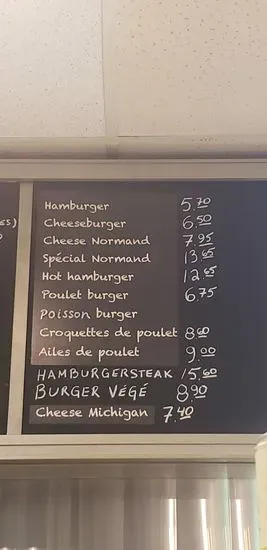 Hamburger 5.70
Cheeseburger 6.50
Cheese Normand 7.95
Spécial Normand 13.65
Hot hamburger 12.65
Poulet burger 6.75
Poisson burger
Croquettes de poulet 8.60
Ailes de poulet 9.00
HAMBURGERSTEAK 15.60
BURGER VÉGÉ 8.90
Cheese Michigan 7.40